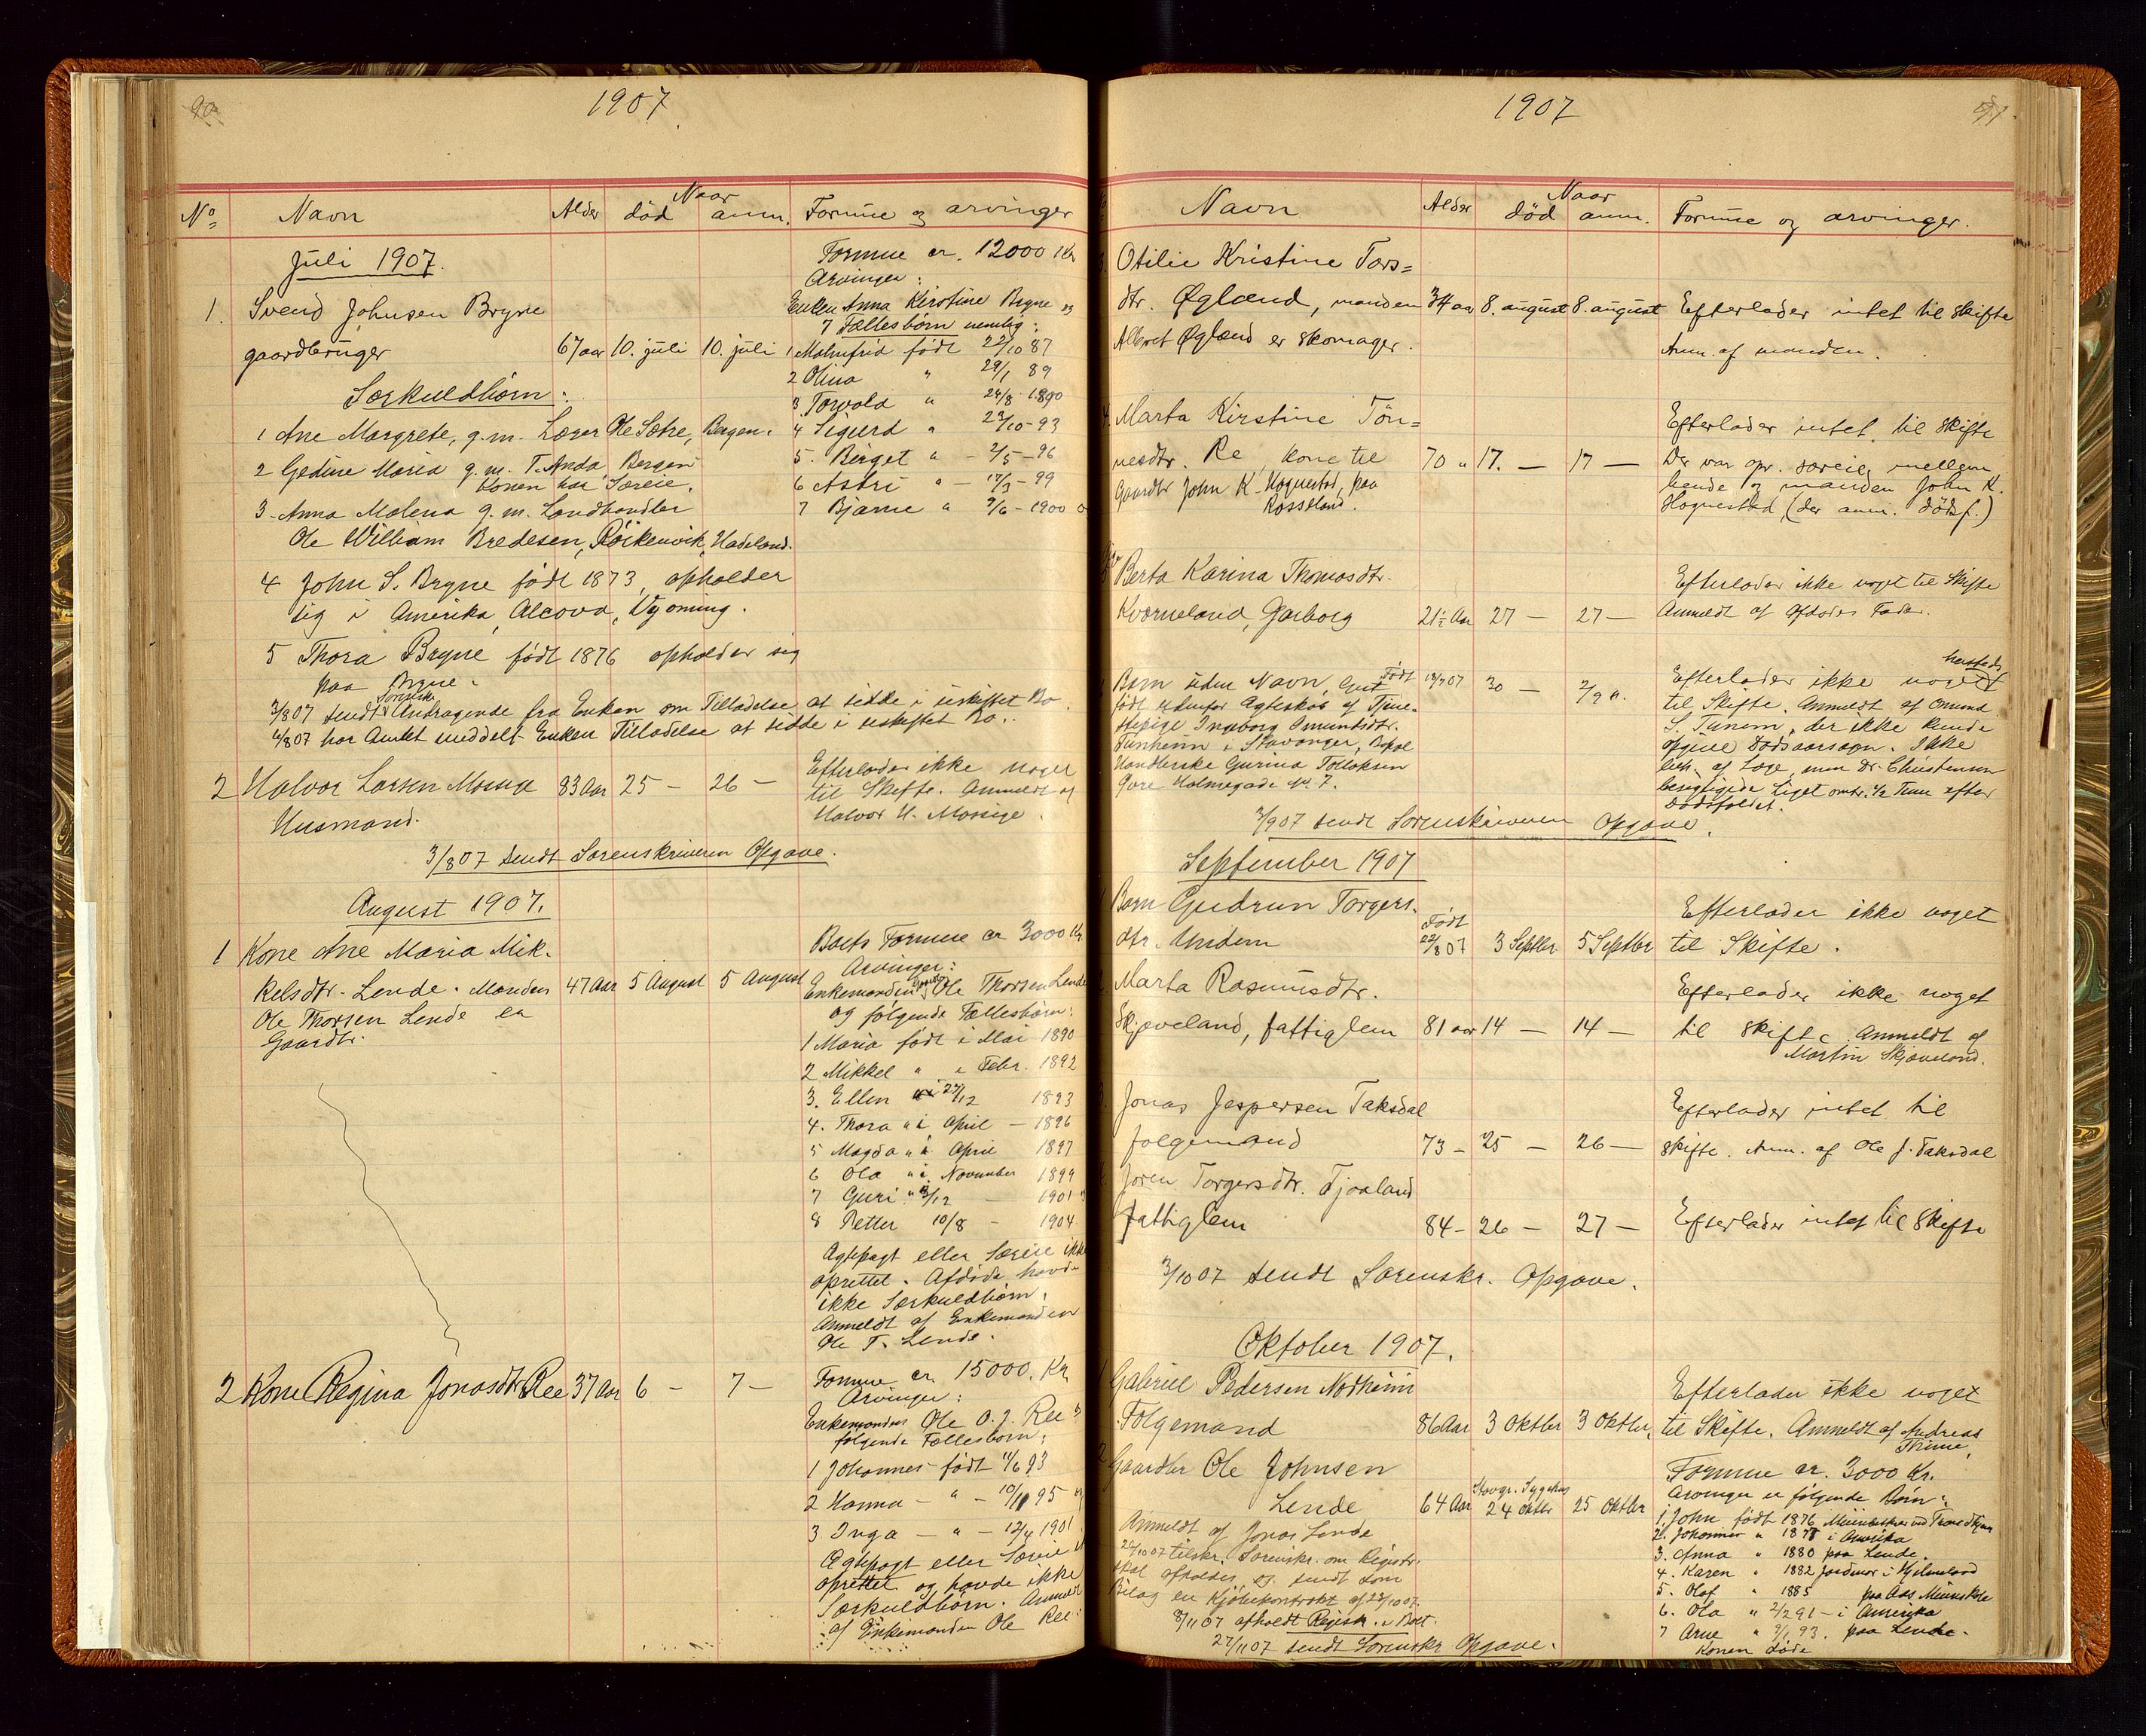 90
1907
No Navn Alder Naar død anm. Formue og arvinger
Juli 1907.
1. Svend Johnsen Bryne
gaardbruger 67 aar 10. juli 10. juli
Formue ca. 12000 Kr
Arvinger:
Enken Anna Kirstine Bryne og
7 Fællesbørn nemlig:
1 Malmfrid født 22/10 87
2 Olina " 29/1 89
3. Torvald " 24/8 1890
4 Sigurd " 23/10-93
5. Berget " - 2/5-96
6 Astri " - 17/3-99
7 Bjarne " 9/6-1900
Særkuldbørn:
1 Ane Margrete, g.m. Læger Ole Sætre, Bergen.
2 Gedine Maria g.m. T. Anda, Bergen
Konen har Særeie.
3. Anna Malena g.m. Landhandler
Ole William Bredesen, Røikenvik, Hadeland.
4 John S. Bryne født 1873, opholder
sig i Amerika, Alcova, Wyoming.
5 Thora Bryne født 1876 opholder sig
paa Bryne.
3/8 07 sendt Sorenskr Andragende fra Enken om Tilladelse at sidde i uskiftet Bo.
4/8 07 har Amtet meddelt Enken Tilladelse at sidde i uskiftet Bo.
2 Halvor Larsen Mossige 83 Aar 25 - 26 -
Husmand.
Efterlader ikke noget
til Skifte. Anmeldt af
Halvor H. Mossige.
3/8 07 sendt Sorenskriveren Opgave.
August 1907.
1 Kone Ane Maria Mik-
kelsdtr. Lende. Manden 47 Aar 5 August 5 August
Ole Thorsen Lende er
Gaardbr.
Boets Formue ca 3000 Kr
Arvinger:
Enkemanden Ole Thorsen Lende
og følgende Fællesbørn:
1 Maria født i Mai 1890
2 Mikkel " " Febr. 1892
3. Ellen 27/12 1893
4. Thora " i April - 1896
5 Magda " i April 1897
6 Ola " i November 1899
7 Guri " 3/12 - 1901
8 Petter 10/8 - 1904
Agtepagt eller Særeie ikke
oprettet. Afdøde havde
ikke Særkuldbørn.
Anmeldt af Enkemanden
Ole T. Lende.
2 Kone Regina Jonasdtr Ree 37 Aar 6 - 7 -
Formue ca 15000. Kr
Arvinger:
Enkemanden Ole O.J. Ree
følgende Fællesbørn:
1 Johannes født 11/6 93
2 Hanna - " - 10/11 95
3 Inga - " - 12/4 1901
Agtepagt eller Særeie
oprettet og havde ikke
Særkuldbørn. Anmeldt
af Enkemanden Ole Ree.
1907
91
Navn Alder Naar død anm. Formue og arvinger.
Otilie Kristine Tors=
dtr. Øgland, manden 34 aar 8. august 8. august Efterlader intet til skifte
Albert Øgland er skomager. Anm. af manden.
Marta Kirstine Tøn=
nesdtr. Re, kone til 70 " 17. - 17 -
gaardbr John K. Høgnestad, paa
Rosseland.
Efterlader intet til skifte
Der var opr. særeie mellem
hende og manden John K.
Høgnestad, (der anm. dødsf.)
Berta Karina Thomasdtr.
Kverneland, Garborg 21½ Aar 27 - 27 -
Efterlader ikke noget til Skifte
Anmeldt af Afdødes Fader.
Barn uden Navn, Gut Født 18/7 07 30 - 2/9
født udenfor Ægteskab af Tjene-
stepige Ingeborg Omundsdtr.
Tunheim i Stavanger, Bopæl
Handlerske Gurina Tollaksen
Øvre Holmegade No. 7.
Efterlader ikke noget
til Skifte. Anmeldt af Omund
S. Tunem, der ikke kunde
opgive Dødsaarsagen. Ikke
beh. af Læge, men Dr. Christensen
besigtigede Liget omtr. ½ Time efter
Dødsfaldet.
7/9 07 sendt Sorenskriveren Opgave.
September 1907
Barn Gudrun Torgers-
dtr. Undem Født 22/8 07 3 Septbr 5 Septbr
Efterlader ikke noget
til Skifte.
Marta Rasmusdtr.
Skjæveland, fattiglem 81 aar 14 - 14 -
Efterlader ikke noget
til skifte Anmeldt af
Martin Skjæveland.
Jonas Jespersen Taksdal
følgemand 73 - 25 - 26 -
Efterlader intet til
skifte. Anm. af Ole J. Taksdal
Joren Torgersdtr. Tjaaland
fattiglem 84 - 26 - 27 - Efterlader intet til skifte
3/10 07 sendt Sorenskr. Opgave.
Oktober 1907.
Gabriel Pedersen Nodheim
Følgemand 86 Aar 3 Oktbr 3 Oktbr.
Efterlader ikke noget
til Skifte. Anmeldt af Andreas
Thime.
2 Gaardbr Ole Johnsen
Lende 64 Aar Stavgr. Sygehus 24 Oktbr 25 Oktbr
Anmeldt af Jonas Lende
tilskr. Sorenskr. om Registr.
skal afholdes og sendt som
Bilag en Kjøbekontrakt af 23/10 07.
8/11 07 afholdt Registr. i Boet.
27/11 07 sendt Sorenskr Opgave.
Formue ca. 3000 Kr.
Arvinger er følgende Børn:
1. John født 1876
2. Johannes " i Amerika
3. Anna " 1880 paa Lende.
4. Karen " 1882 Jordmor i Hjelmeland
5. Olaf " 1885
6. Ola " 2/2 91 - i Amerika
7 Arne " 93. paa Lende.
Konen døde